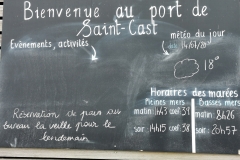 Bienvenue au port de
Saint-Cast
Evènements, activités
météo du jour
18°
Horaires des marées
Pleines mers Basses mers
matin: 1h43 coef: 39 matin: 8h26
soir: 14h15 coef: 38 soir: 20h57
Réservation de pain au
bureau la veille pour le
lendemain